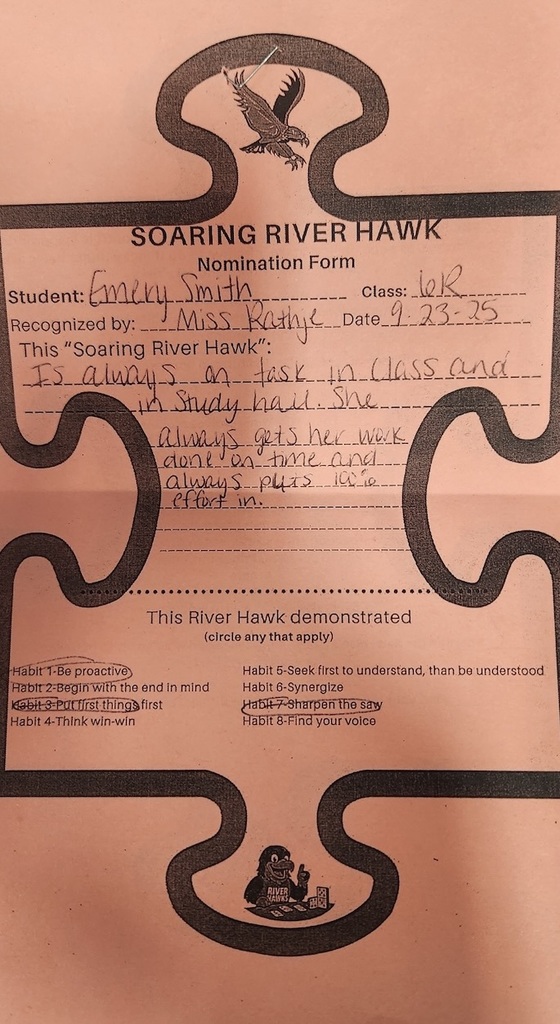 SOARING RIVER HAWK
Nomination Form
Student: Emery Smith Class: 6R
Recognized by: Miss Rathje Date 9-23-25
This "Soaring River Hawk":
Is always on task in class and
in Study hall. She
always gets her work
done on time and
always puts 100%
effort in.
This River Hawk demonstrated
(circle any that apply)
Habit 1-Be proactive
Habit 2-Begin with the end in mind
Habit 3-Put first things first
Habit 4-Think win-win
Habit 5-Seek first to understand, than be understood
Habit 6-Synergize
Habit 7-Sharpen the saw
Habit 8-Find your voice
RIVER
HAWKS